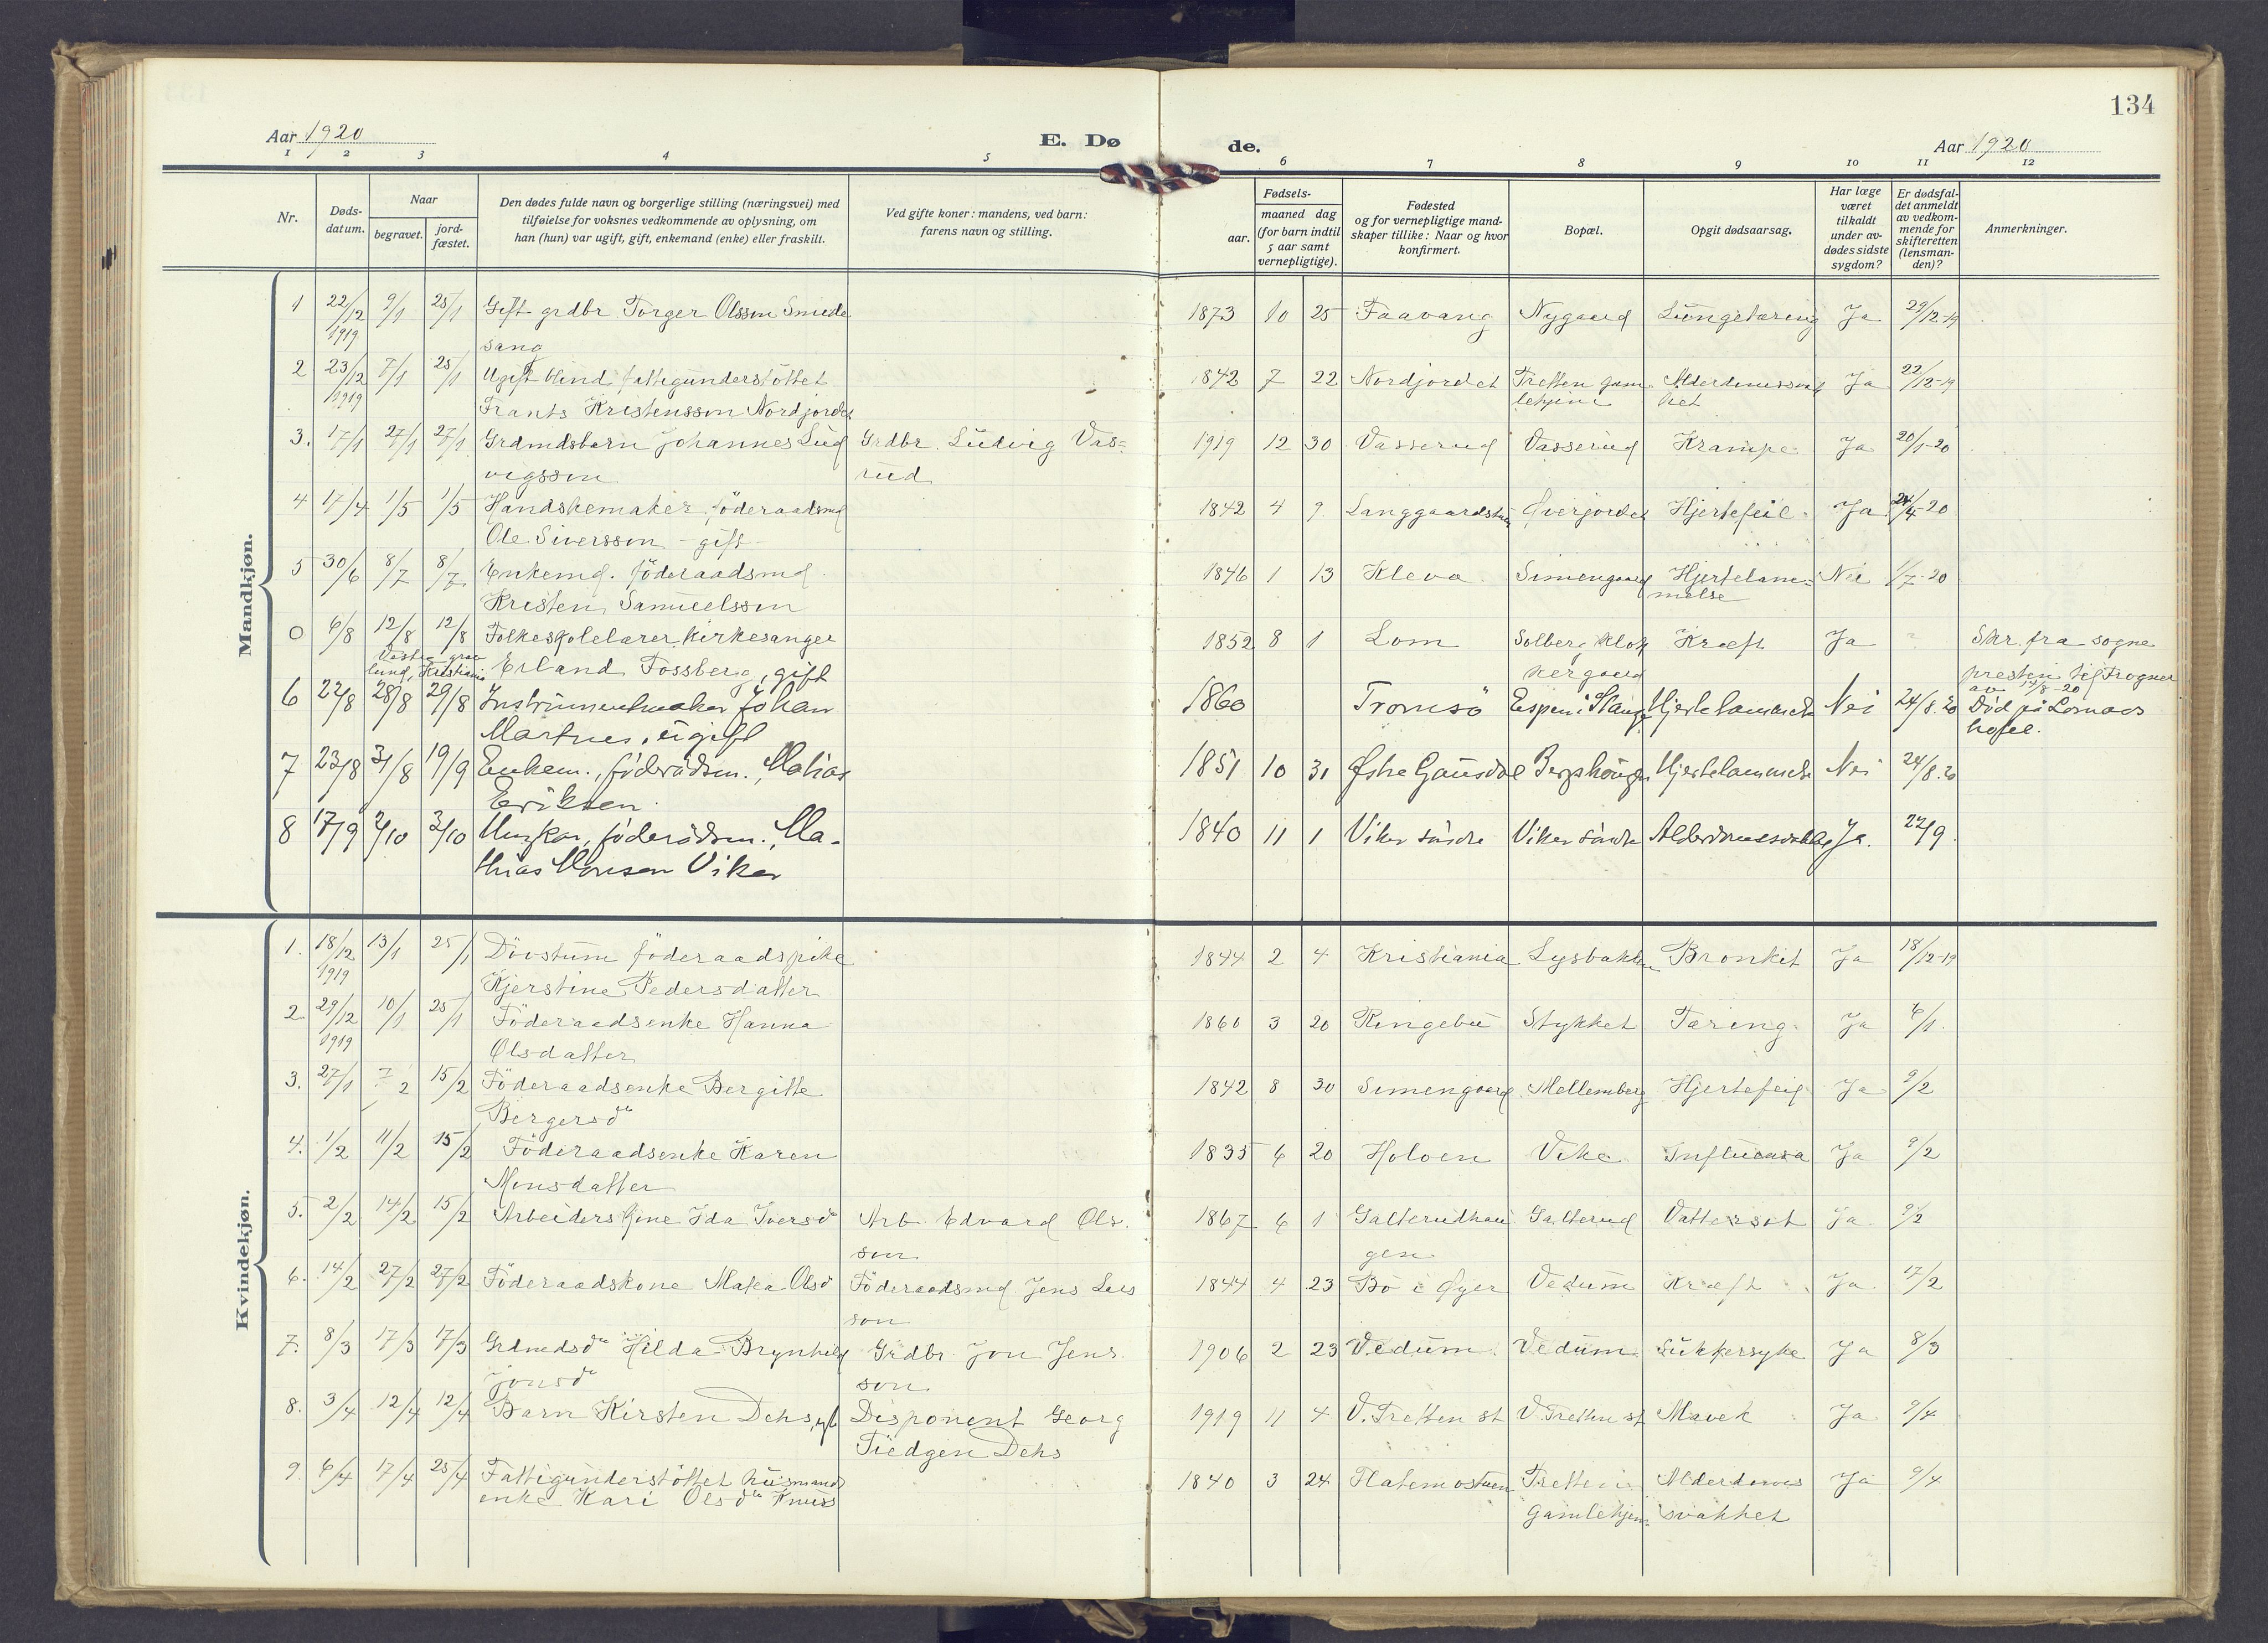 134
Aar 1920 E. Dø de. Aar 1920
1 2 3 4 5 6 7 8 9 10 11 12
Nr.
Døds-datum.
Naar
begravet.
jord-fæstet.
Den dødes fulde navn og borgerlige stilling (næringsvei) med
tilføielse for voksnes vedkommende av oplysning, om
han (hun) var ugift, gift, enkemand (enke) eller fraskilt.
Ved gifte koner: mandens, ved barn:
farens navn og stilling.
Fødsels-
aar.
maaned dag
(for barn indtil
5 aar samt
vernepligtige).
Fødested
og for vernepligtige mand-
skaper tillike: Naar og hvor
konfirmert.
Bopæl.
Opgit dødsaarsag.
Har læge
været
tilkaldt
under av-
dødes sidste
sygdom?
Er dødsfal-
det anmeldt
av vedkom-
mende for
skifteretten
(lensman-
den)?
Anmerkninger.
Mandkjøn.
1 22/12 9/1 25/1 Gift grdbr Torger Olssen Smede 1873 10 25 Faavang Nygaard Lungetæring Ja 29/12-19
1919 sang
2 23/12 7/1 25/1 Ugift blind fattigunderstöttet 1842 7 22 Nordjordet Tretten gam Ja 22/12-19
1919 Frants Kristenssen Nordjordet lehjem het
3. 17/1 27/1 27/1 Grdmdsbarn Johannes Lud Grdbr. Ludvig Vas= 1919 12 30 Vasserud Vasserud Krampe Ja 20/1-20
vigssen rud
4 17/4 1/5 1/5 Handskemaker, föderaadsmd 1842 4 9 Øverjordet Hjertefeil Ja 24/4-20
Ole Siverssen - gift -
5 30/6 8/7 8/7 Enkemd. föderaadsmd 1846 1 13 Kleva Simengaard Hjertelam= Nei 1/7-20
Kristen Samuelssen melse
0 6/8 12/8 12/8 Folkeskolelærer, kirkesanger 1852 8 1 Lom Solberg klok Kræft Ja Skr. fra sogne
Vestre grav
lund, Kristiania Erland Fossberg, gift kergaard presten til Frogner
av 14/8-20
6 22/8 28/8 29/8 Instrumentmaker Johan 1860 Tromsö Espen i Stange Hjertelammelse Nei 24/8.20 Död på Lomaas
Martnes, ugift hotel.
7 23/8 31/8 19/9 Enkem., föderådsm. Matias 1851 10 31 Østre Gausdal Berghougen Hjertelammelse Nei 24/8.20
Eriksen
8 17/9 2/10 3/10 Ungkar, föderådsm. Ma- 1840 11 1 Viker söndre Viker söndre Ja. 22/9
thias Monsen Viker
Kvindekjøn.
1. 18/12 13/1 25/1 Dövstum föderaadspike 1844 2 4 Kristiania Lysbakken Bronkit Ja 18/12-19
1919 Kjerstine Pedersdatter
2. 29/12 10/1 25/1 Föderaadsenke Hanna 1860 3 20 Ringebu Stykket Tæring Ja 6/1
1919 Olsdatter
3. 27/1 7/2 15/2 Föderaadsenke Bergitte 1842 8 30 Simengaard Mellemberg Hjertefeil Ja 9/2
Bergersdr
4. 1/2 11/2 15/2 Föderaadsenke Karen 1835 6 20 Holoen Influensa Ja 9/2
Monsdatter
5. 2/2 14/2 15/2 Arbeiders kone Ida Iversdr Arb. Edvard Ols. 1867 6 1 Galterudhau Galterud Vattersot Ja 9/2
sen gen
6. 14/2 27/2 27/2 Föderaadskone Matea Olsdr Föderaadsmd Jens Lars 1844 4 23 Bö i Øyer Vedum Kræft Ja 17/2
son
7. 8/3 17/3 17/3 Grdmdsdr Hilda Brynhild Grdbr. Jon Jens 1906 2 23 Vedum Vedum Sukkersyke Ja 8/3
Jonsdr son
8. 3/4 12/4 12/4 Barn Kirsten Dehs, Disponent Georg 1919 11 4 V. Tretten st V. Tretten st Mavek Ja 9/4
Tiedgen Dehs
9. 6/4 17/4 25/4 Fattigunderstöttet husmands 1840 3 24 Flatemostuen Tretten Alderdoms Ja 9/4
enke Kari Olsdr gamlehjem svakhet